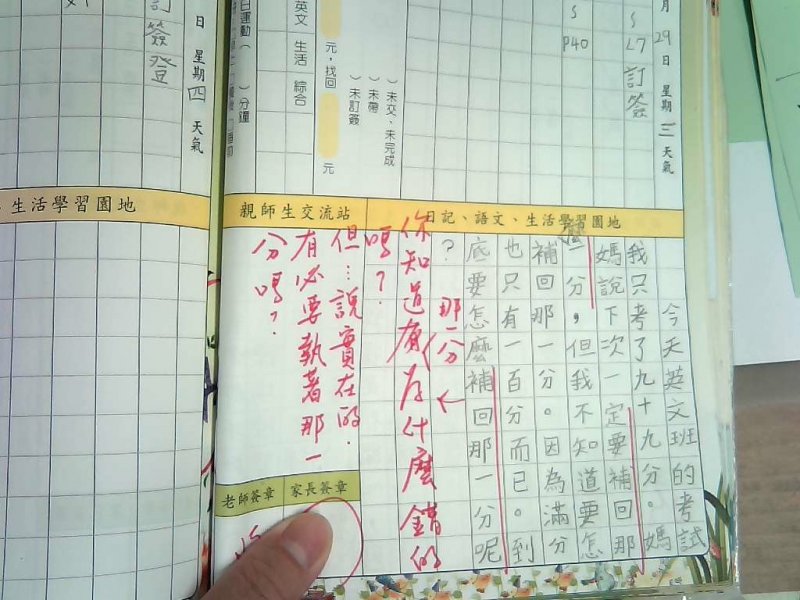 月29日 星期三 天氣
S L7 訂簽
S P40
)未交、未完成
)未帶
)未訂簽
元,找回 元
英文 生活 綜合
日運動( )分鐘
日記、語文、生活學習園地
今天英文班的考試
我只考了九十九分。媽
媽說下次一定要補回那
一分,但我不知道要怎
麼
補回那一分。因為滿分
也只有一百分而已。到
底要怎麼補回那一分呢
?
那一分
你知道為什麼錯的
嗎?
親師生交流站
但…說實在的.
有必要執著那一
分嗎?
家長簽章
老師簽章
日 星期四 天氣
訂簽登
生活學習園地